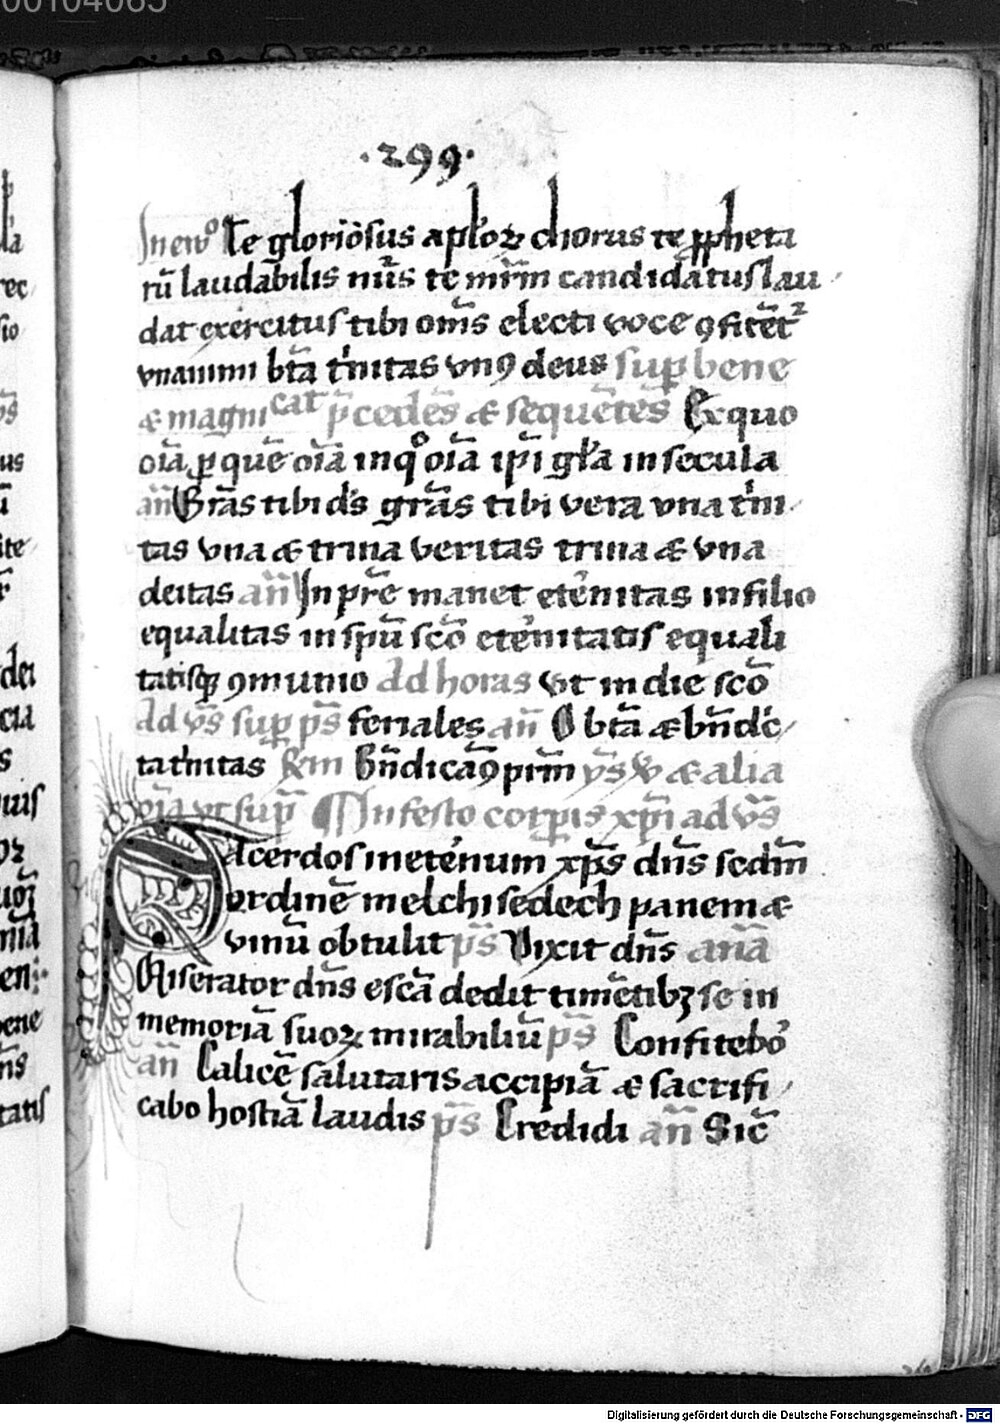 00104065
·299·
In evo Te gloriosus aplo℞ chorus te ꝓpheta
rū laudabilis nūs te mr̄m candidatus lau
dat exercitus tibi om̄s electi voce ꝯfitēt᷑
vnanimi btā tⁱnitas vnꝰ deus sup bene
& magnicat p̄cedēs & sequētes Ex quo
oīa ꝑ quē oīa in qͦ oīa ip̄i glʼa in secula
añ Grãs tibi dʼs grãs tibi vera vna tⁱni
tas vna & trina veritas trina & vna
deitas añ In pr̄e manet etʼnitas in filio
equalitas in spū scō etʼnitatis equali
tatisqꝫ ꝯmunio Ad horas vt in die scō
Ad vs̄ sup ps̄ feriales añ O btā & bn̄dc̄
ta tⁱnitas Bn̄dicãꝰ prm̄ vs̄ & alia
oīa vt supͣ ¶ In festo corꝑis xp̄i ad vs̄
Sacerdos in etʼnum xp̄s dn̄s scdm̄
ordinē melchisedech panem &
vinū obtulit ps̄ Dixit dn̄s aña
Miserator dn̄s escā dedit timētibꝫ se in
memoriā suoꝝ mirabiliū ps̄ Confitebor
añ Calicē salutaris accipiā & sacrifi
cabo hostiā laudis ps̄ Credidi añ Sic̄
Digitalisierung gefördert durch die Deutsche Forschungsgemeinschaft - DFG